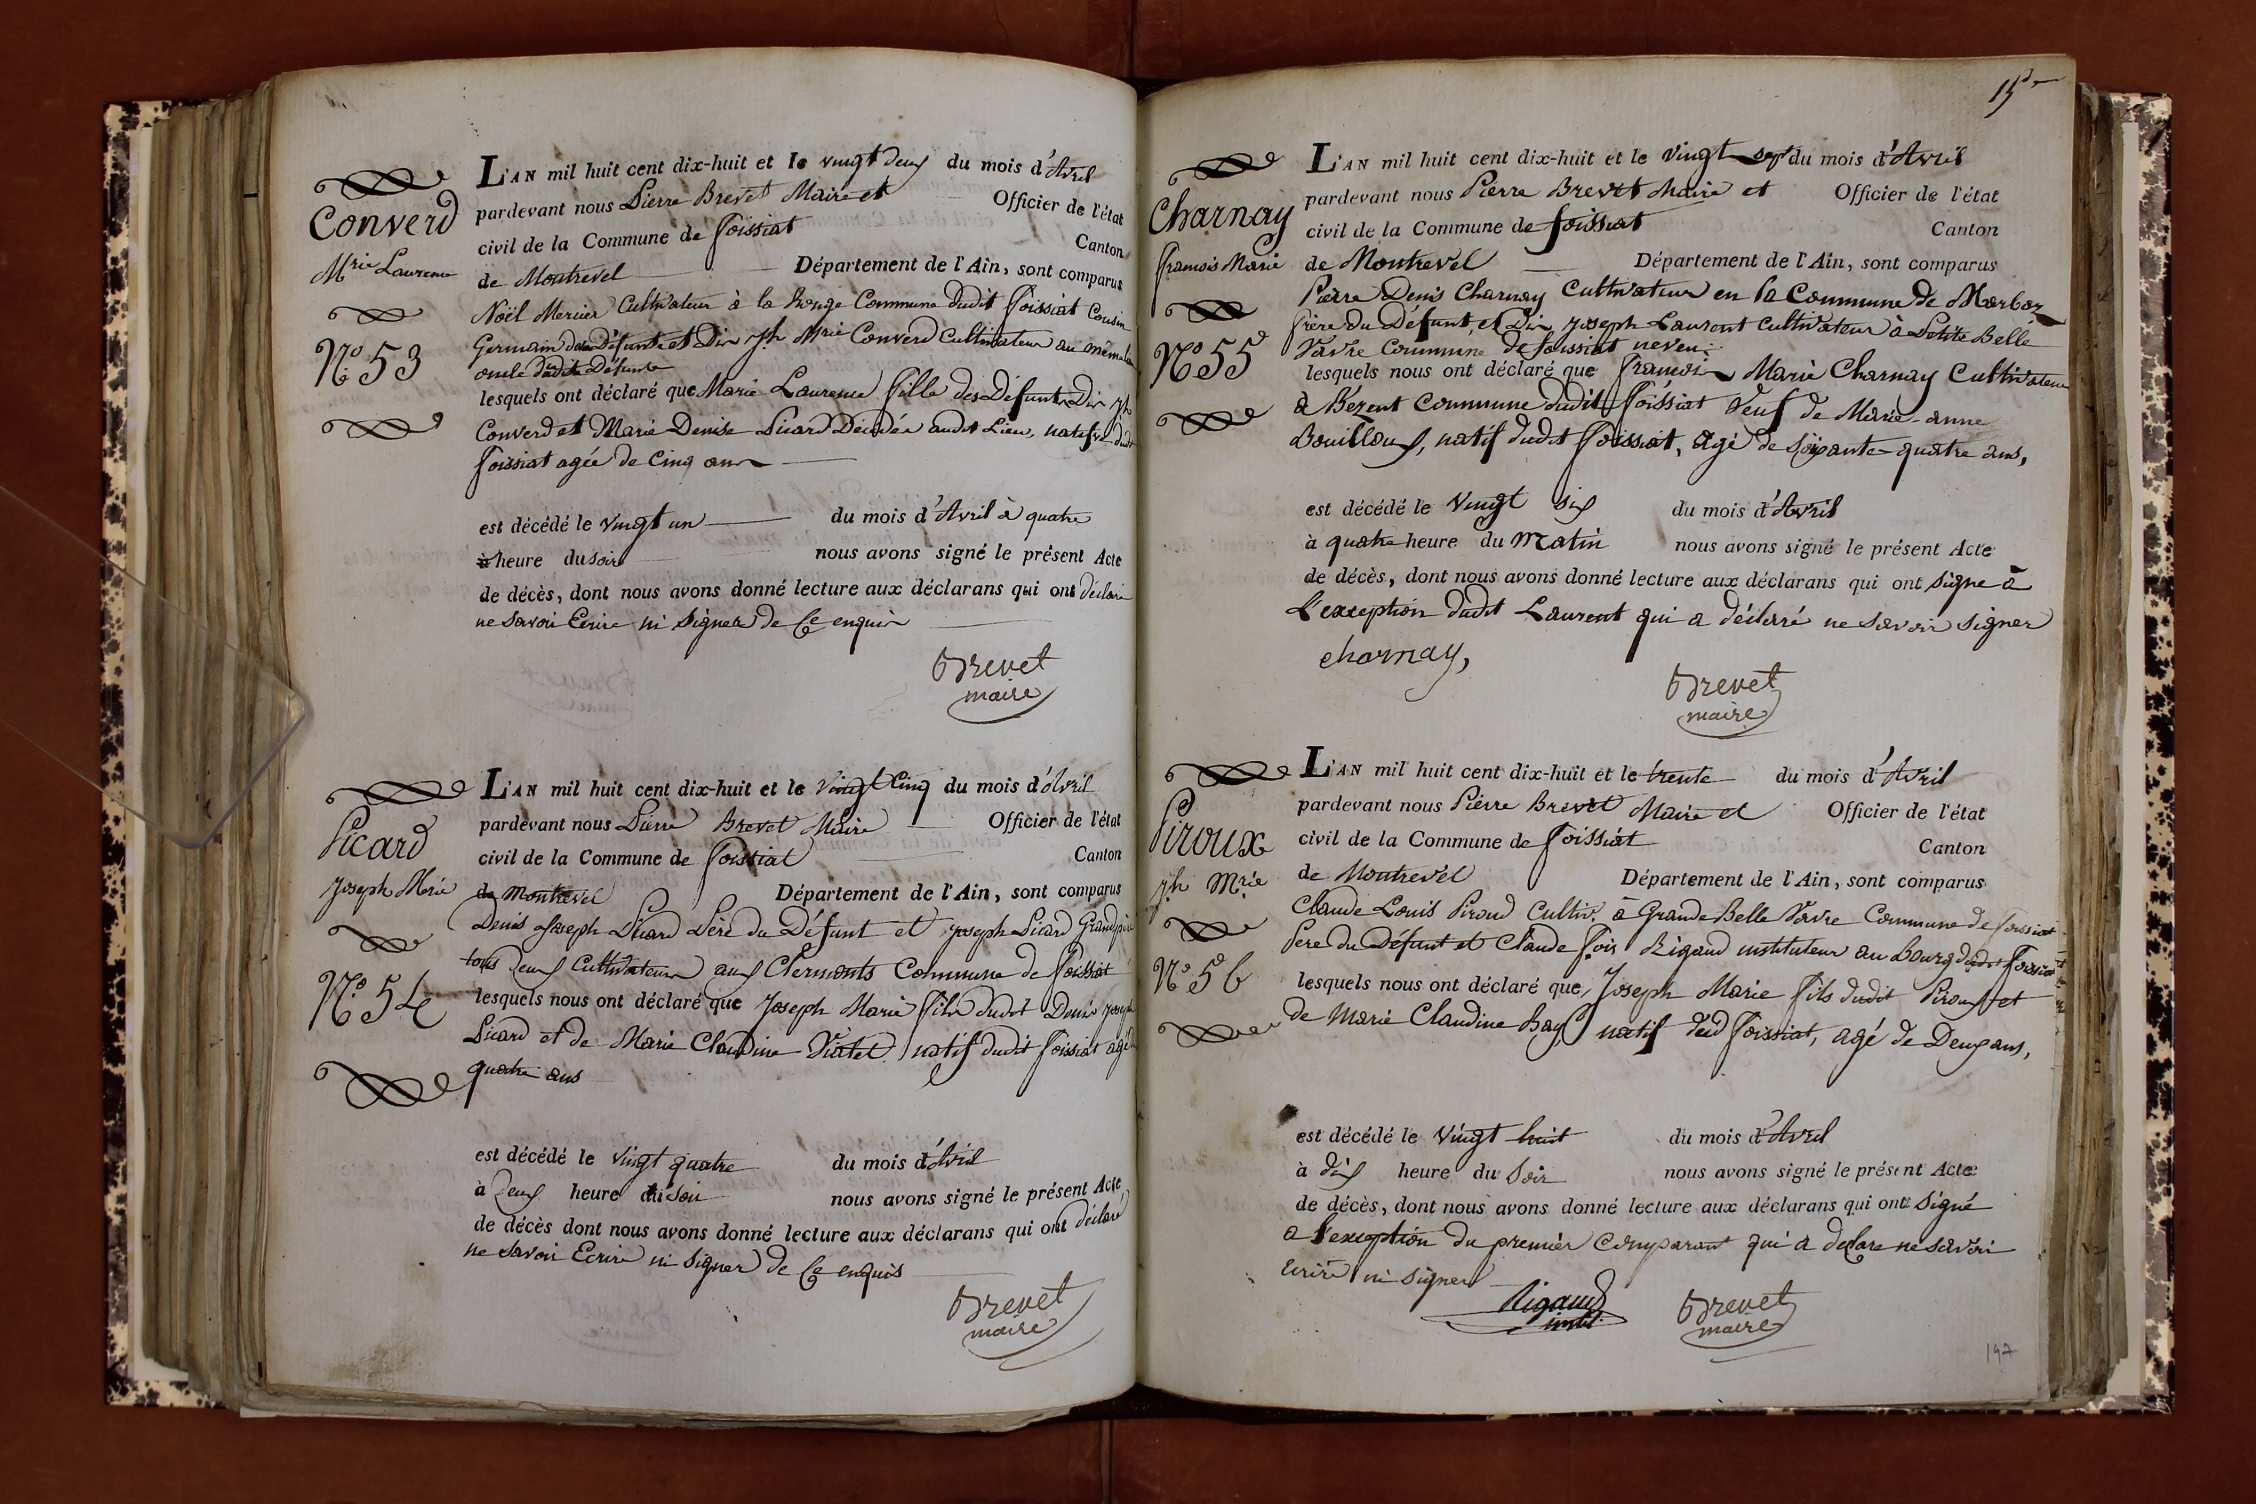 Converd
Mrie Laurence
No 53
L'AN mil huit cent dix-huit et le vingt deux du mois d'Avril
pardevant nous Pierre Brevet Maire et Officier de l'état
civil de la Commune de foissiat Canton
de Montrevel Département de l'Ain, sont comparus
Noël Mercier Cultivateur à la Rouge Commune dudit foissiat Cousin
Germain de la Défunte et Dix jh Mrie Converd Cultivateur au même lieu
oncle dudit Défunte
lesquels ont déclaré que Marie Laurence fille des Défunts Dix jh
Converd et Marie Denise Picard Décédée audit Lieu, native dudit
foissiat agée de Cinq ans
est décédé le vingt un du mois d'Avril à quatre
à heure du soir nous avons signé le présent Acte
de décès, dont nous avons donné lecture aux déclarans qui ont déclaré
ne savoir Ecrire ni signer de Ce enquis
Brevet
maire
Picard
Joseph Marie
No. 54
L'AN mil huit cent dix-huit et le vingt Cinq du mois d'Avril
pardevant nous Pierre Brevet Maire Officier de l'état
civil de la Commune de foissiat Canton
de Montrevel Département de l'Ain, sont comparus
Denis Joseph Picard Père du Défunt et joseph Picard Grand père
tous Deux Cultivateurs aux Clermonts Commune de foissiat
lesquels nous ont déclaré que Joseph Marie fils dudit Denis joseph
Picard et de Marie Claudine Viatel natif dudit foissiat agé
quatre ans
est décédé le vingt quatre du mois d'Avril
à Deux heure du soir nous avons signé le présent Acte
de décès dont nous avons donné lecture aux déclarans qui ont déclaré
ne savoir Ecrire ni signer de Ce enquis
Brevet
maire
15
Charnay
françois Marie
No 55
L'AN mil huit cent dix-huit et le vingt sept du mois d'Avril
pardevant nous Pierre Brevet Maire et Officier de l'état
civil de la Commune de foissiat Canton
de Montrevel Département de l'Ain, sont comparus
Pierre Denis Charnay Cultivateur en la Commune de Marboz
frère du Défunt, et Dix joseph Laurent Cultivateur à Petite Belle
Vavre Commune de foissiat neveu
lesquels nous ont déclaré que françois Marie Charnay Cultivateur
à Bezent Commune dudit foissiat Veuf de Marie-anne
Bouilloux, natif dudit foissiat, agé de soixante-quatre ans,
est décédé le vingt six du mois d'Avril
à quatre heure du matin nous avons signé le présent Acte
de décès, dont nous avons donné lecture aux déclarans qui ont signe à
L'exception dudit Laurent qui a déclaré ne savoir signer
charnay,
Brevet
maire
Piroux
jh Mrie
No 56
L'AN mil huit cent dix-huit et le trente du mois d'Avril
pardevant nous Pierre Brevet Maire et Officier de l'état
civil de la Commune de foissiat Canton
de Montrevel Département de l'Ain, sont comparus
Claude Louis Piroud Cultiv. à Grande Belle Vavre Commune de foissiat
Pere du Défunt et Claude fois Rigaud instituteur au bourg dudit foissiat
lesquels nous ont déclaré que, Joseph Marie fils dudit Piroux et
de Marie Claudine Bay, natif dud foissiat, agé de Deux ans,
est décédé le vingt huit du mois d'Avril
à dix heure du soir nous avons signé le présent Acte
de décès, dont nous avons donné lecture aux déclarans qui ont signé
a l'exception du premier comparant qui a declare ne savoir
ecrire ni signer
Rigaud
instit.
Brevet
maire
197